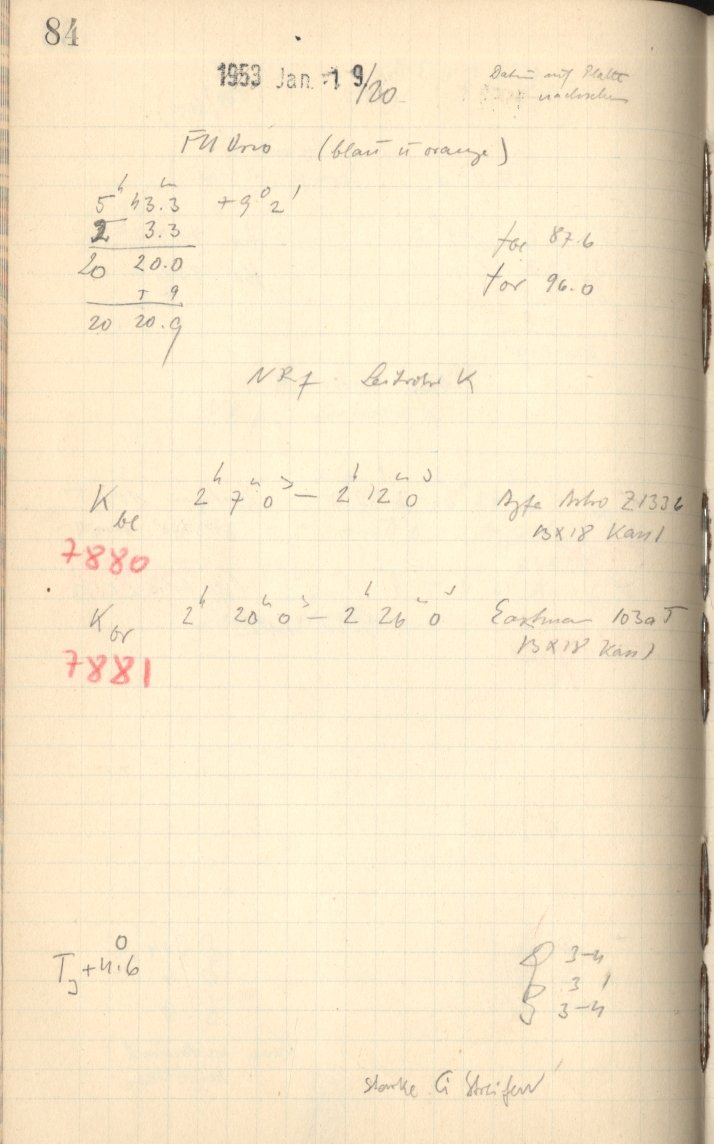 84
1953 Jan. 19/20
Datum auf Platte
nachsehen
FU Orio (blau u orange)
5h 43.3m +9° 2'
2 3.3
20 20.0
+ 9
20 20.9
fbl 87.6
for 96.0
NR7 Leitrohr K
Kbl 2h 7m 0s – 2h 12m 0s Agfa Astro Z1336
13x18 Kass 1
7880
Kor 2h 20m 0s – 2h 26m 0s Eastman 103a T
13x18 Kass 1
7881
TJ +4.6°
3-4
3 1
3-4
starke Ci Streifen